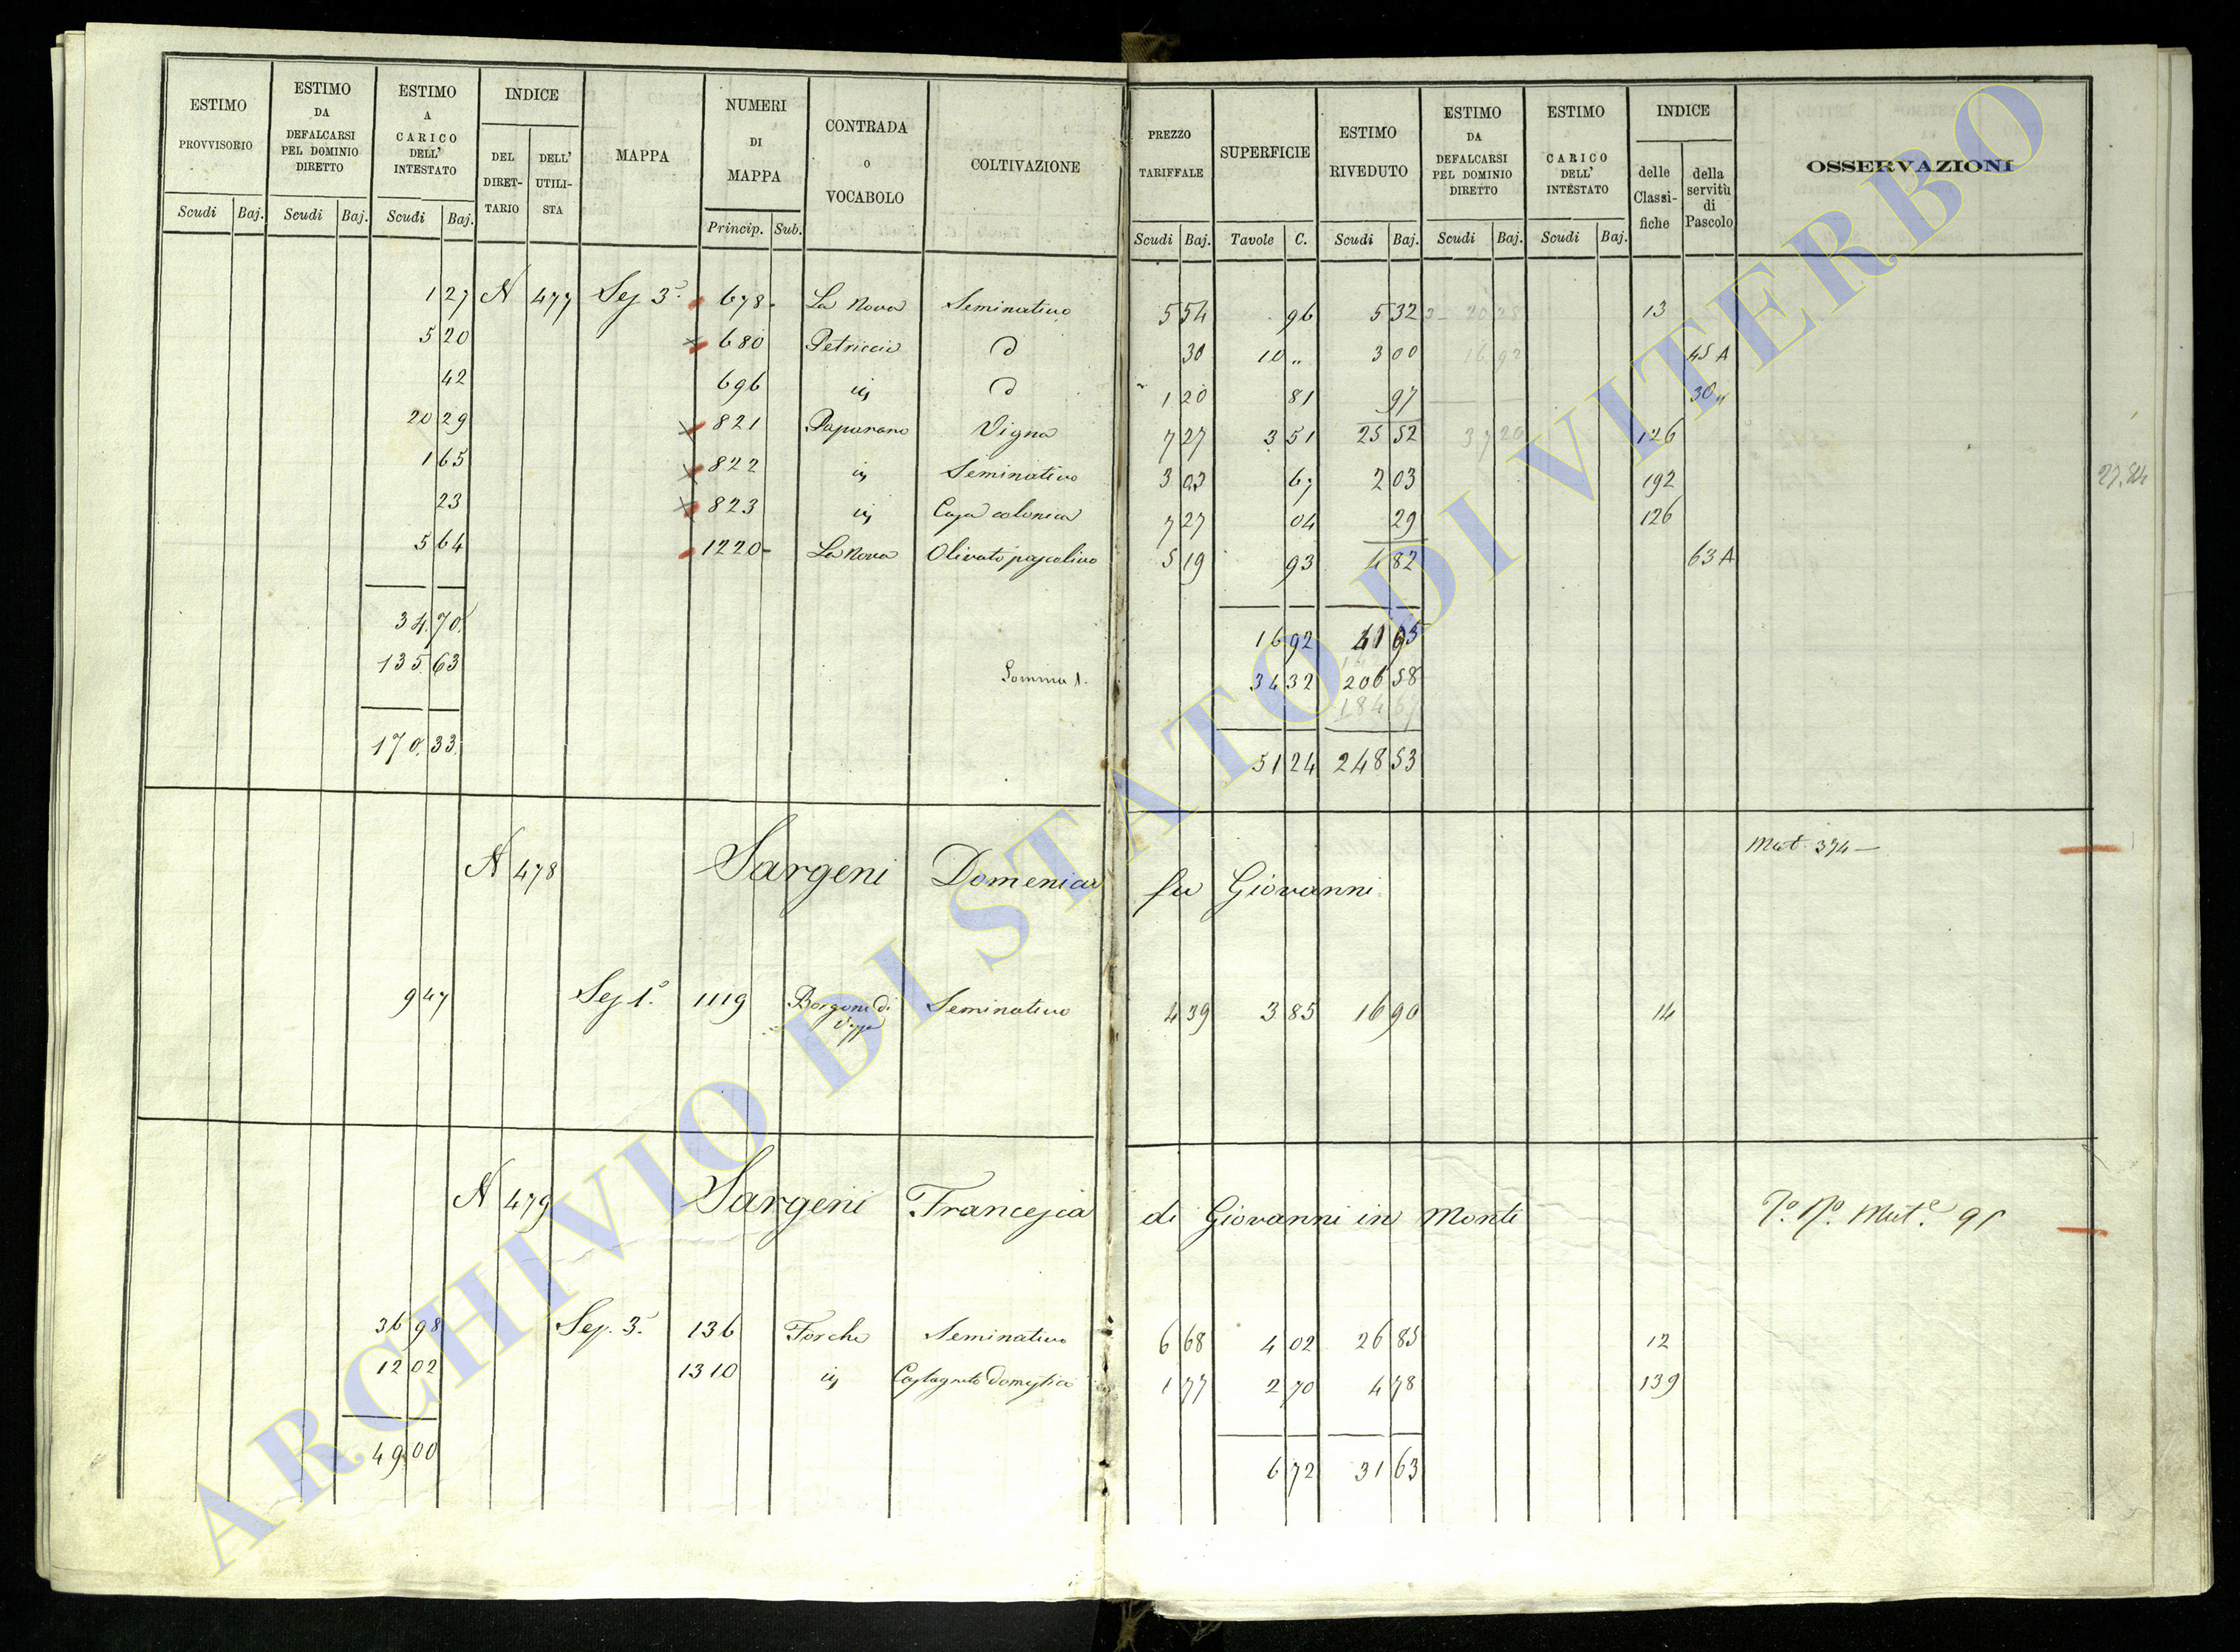 ESTIMO PROVVISORIO | ESTIMO DA DEFALCARSI PEL DOMINIO DIRETTO | ESTIMO A CARICO DELL' INTESTATO | INDICE DEL DIRETTARIO | DELL' UTILISTA | MAPPA | NUMERI DI MAPPA | CONTRADA O VOCABOLO | COLTIVAZIONE | PREZZO TARIFFALE | SUPERFICIE | ESTIMO RIVEDUTO | ESTIMO DA DEFALCARSI PEL DOMINIO DIRETTO | ESTIMO CARICO DELL' INTESTATO | INDICE delle Classifiche | della servitù di Pascolo | OSSERVAZIONI
Scudi Baj. | Scudi Baj. | Scudi Baj. | Princip. Sub. | Scudi Baj. | Tavole C. | Scudi Baj. | Scudi Baj. | Scudi Baj.
1 27 N 477 Sez 3ª 678 La Nova Seminativo 5 54 96 5 32 13
5 20 680 Petriccio d 30 10 „ 3 00 45 A
42 696 iv d 1 20 81 97 30 „
20 29 821 Paparano Vigna 7 27 3 51 25 52 37 20 126
1 65 822 iv Seminativo 3 03 67 2 03 192
23 823 iv Casa colonica 7 27 04 29 126
5 64 1220 La Nova Olivato pascolivo 5 19 93 4 82 63 A
34.70. 16 92 41 95
135 63 Somma 1. 34 32 206 58
170.33. 51 24 248 53
N 478 Sargeni Domenica fu Giovanni Mut. 374
9 47 Sez 1ª 1119 Borgone di Seminativo 4 39 3 85 16 90 14
N 479 Sargeni Francesca di Giovanni in Monti Mut.e 91
36 98 Sez. 3ª 136 Forche Seminativo 6 68 4 02 26 85 12
12 02 1310 iv Castagneto domestico 1 77 2 70 4 78 139
49 00 6 72 31 63
ARCHIVIO DI STATO DI VITERBO